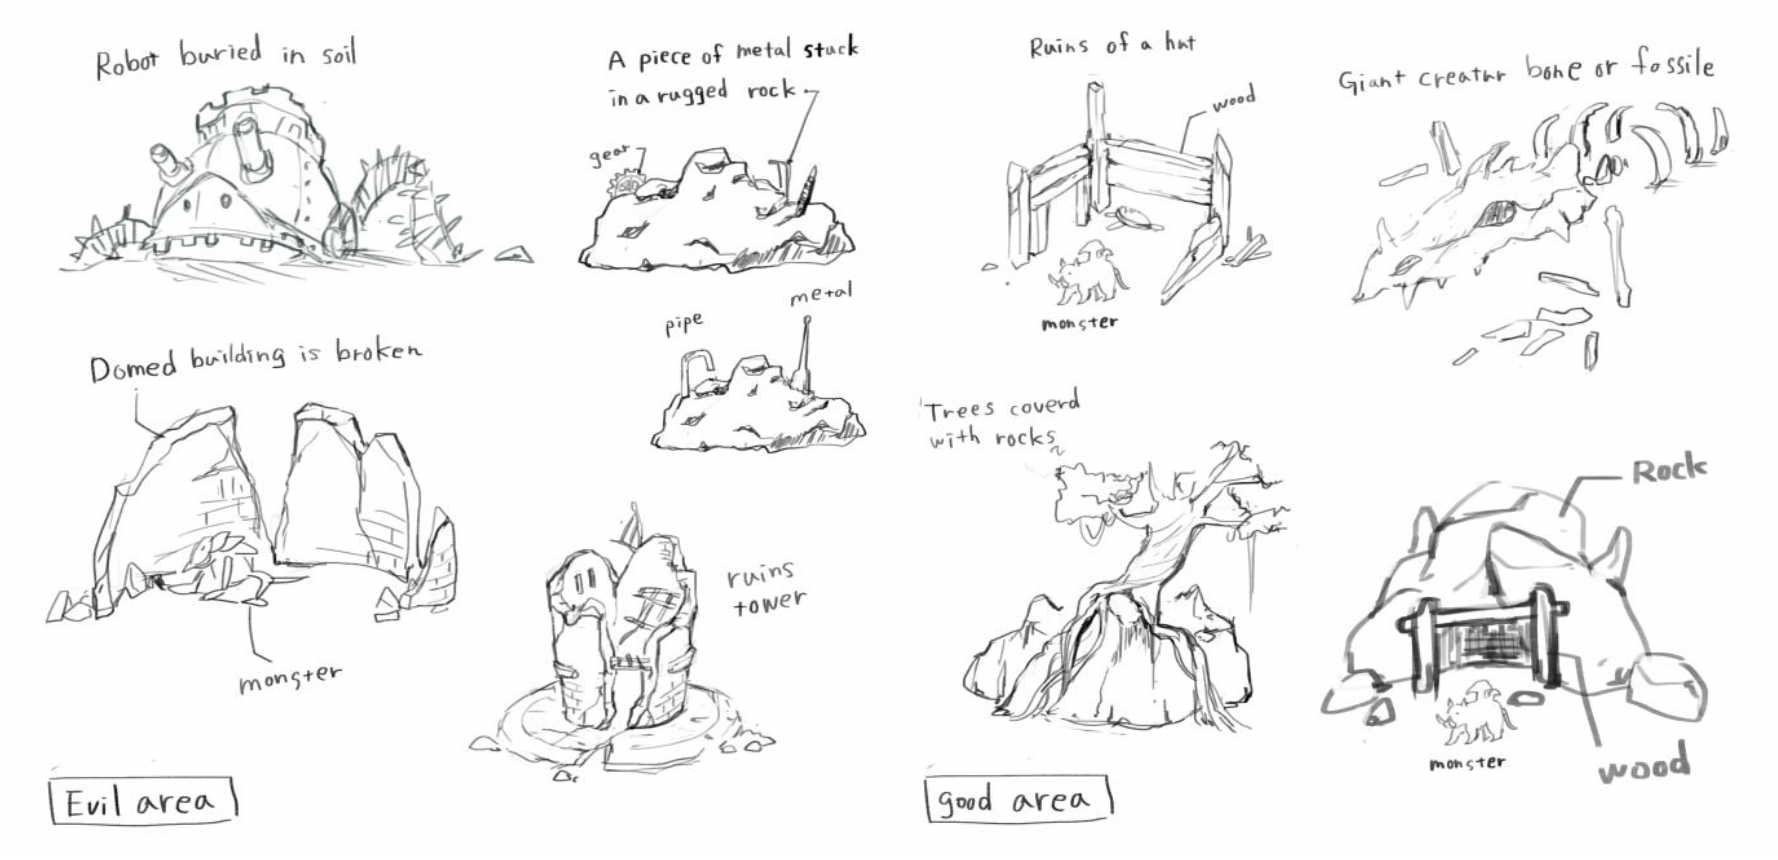 Robot buried in soil
A piece of metal stuck
in a rugged rock
gear
pipe
metal
Domed building is broken
monster
ruins
tower
Evil area
Ruins of a hut
wood
monster
Giant creatur bone or fossile
Trees coverd
with rocks
Rock
monster
wood
good area